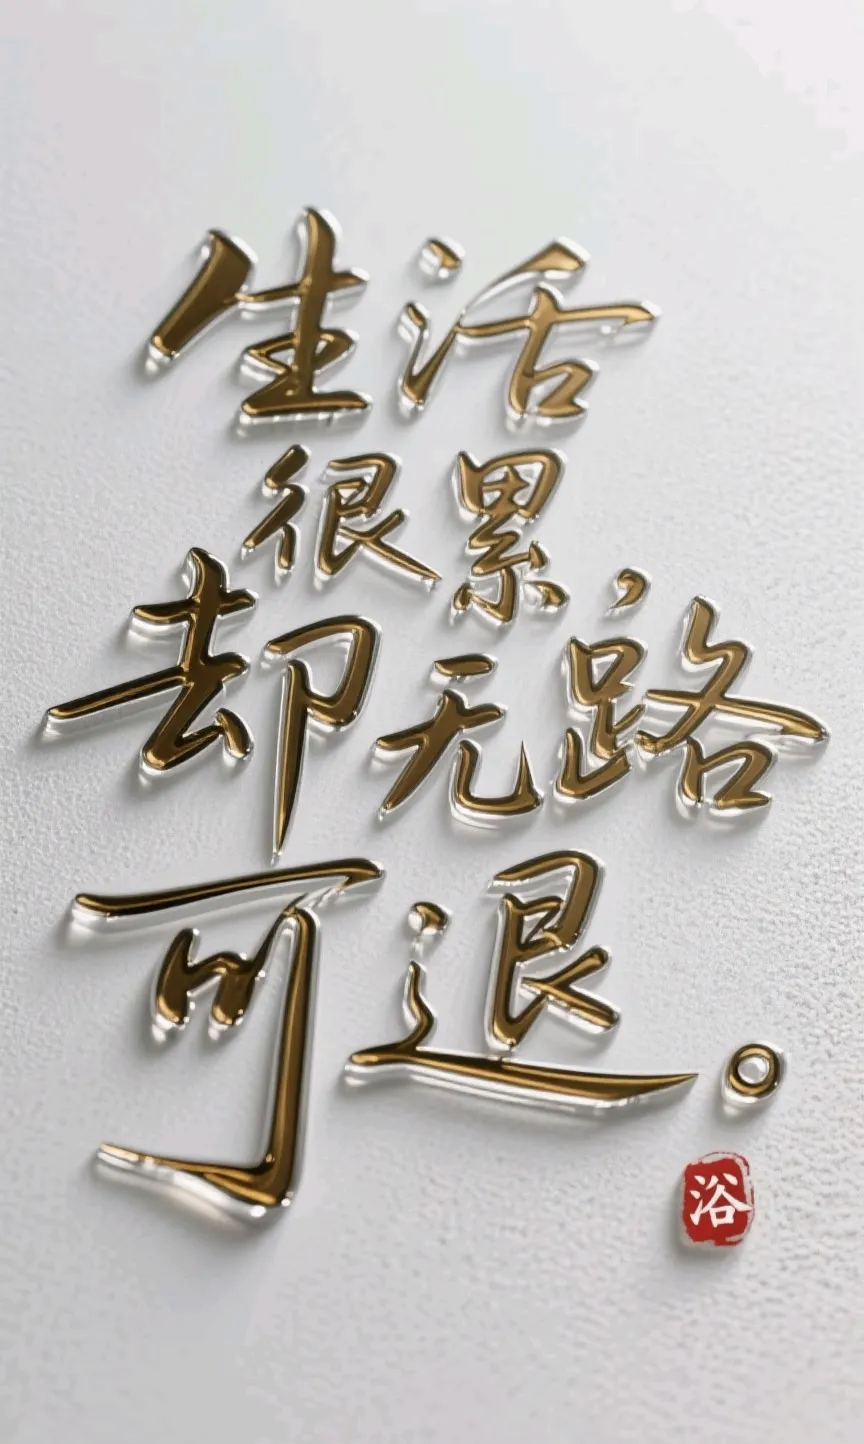 生活
很累，
却无路
可退。
浴